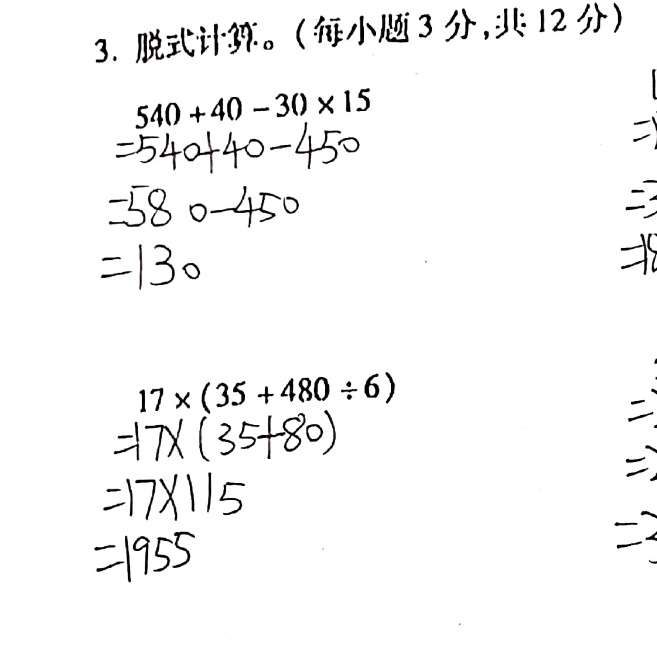 3. 脱式计算。(每小题 3 分,共 12 分)
540 + 40 - 30 × 15
=540+40-450
=580-450
=130
17 × (35 + 480 ÷ 6)
=17×(35+80)
=17×115
=1955